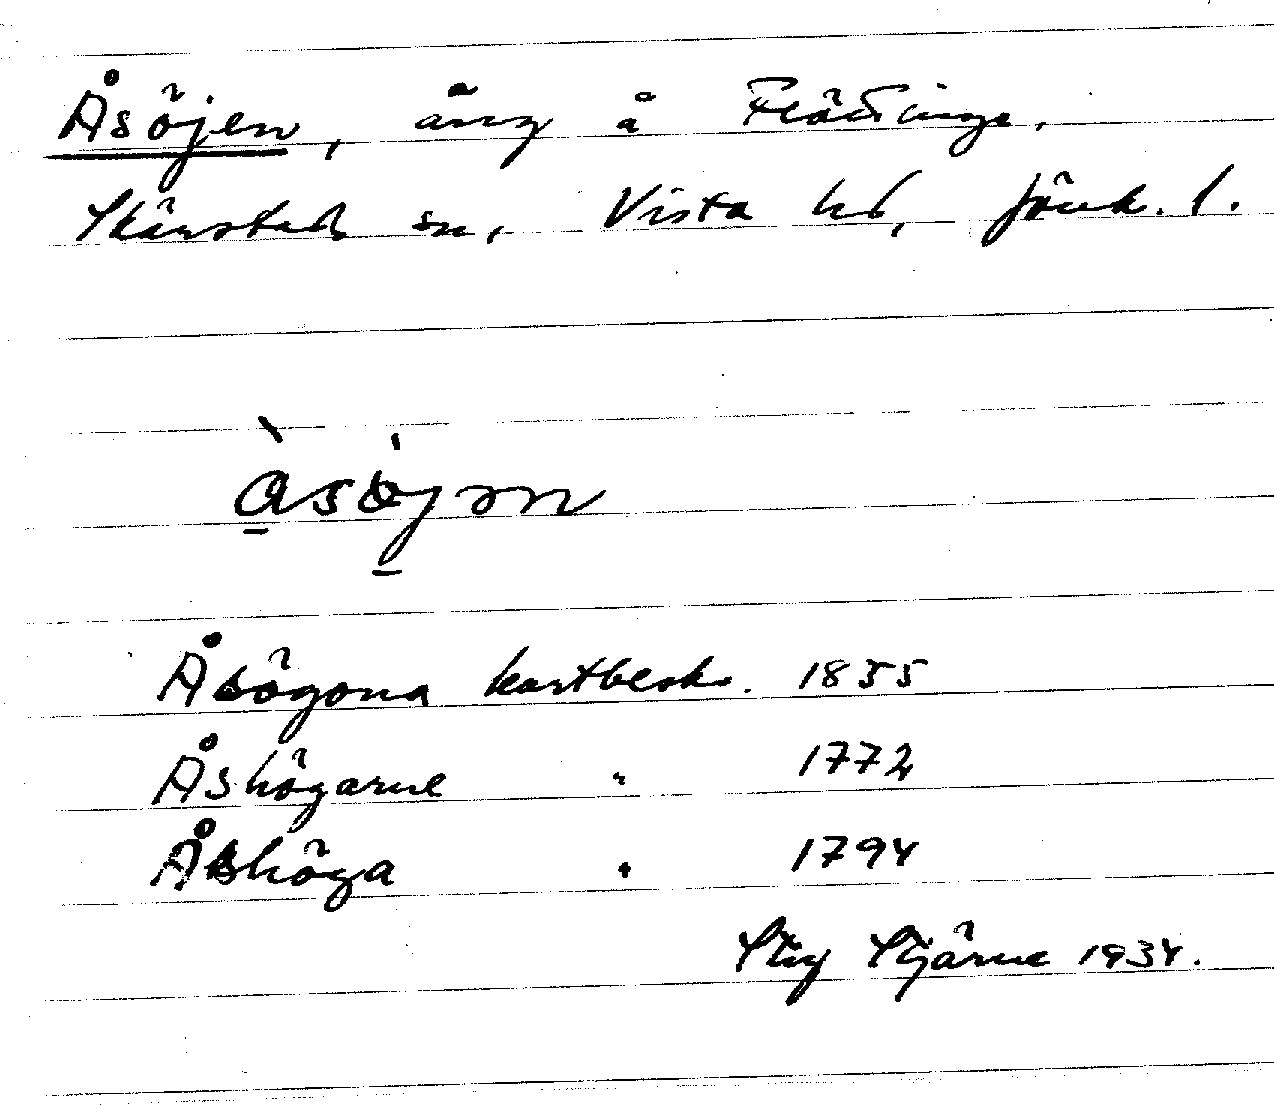 Åsöjen, äng å Flättinge,
Skärstad sn, Vista hd, Jönk. l.
àsöjən
Åsögona kartbesk. 1855
Åshögarne " 1772
Åshöga " 1794
Stig Stjärne 1934.